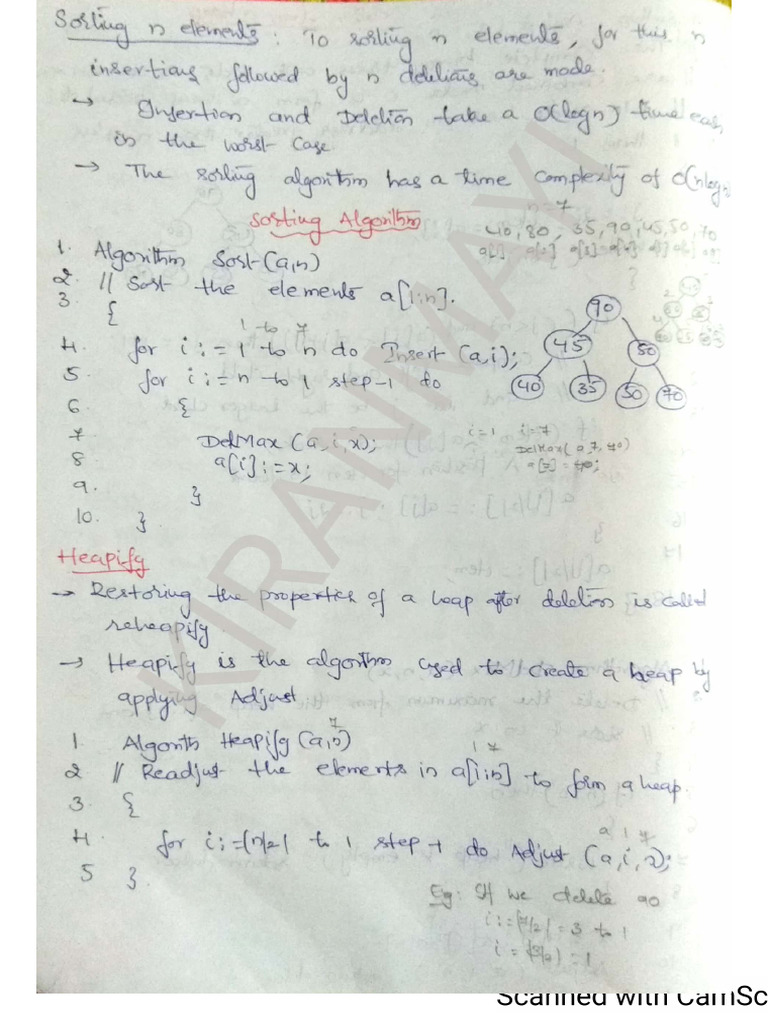 Sorting n elements: To sorting n elements, for this n
insertions followed by n deletions are made.
→ Insertion and Deletion take a O(log n) time each
in the worst case
→ The sorting algorithm has a time complexity of O(nlogn)
Sorting Algorithm
n=7
40, 80, 35, 90, 45, 50, 70
a[1] a[2] a[3] a[4]
1. Algorithm Sort(a,n)
2. // Sort the elements a[1:n].
3 {
1 to 7
4. for i:=1 to n do Insert (a,i);
5. for i:=n to 1 step-1 do
6 {
7 DelMax (a,i,x);
8 a[i]:=x;
9. }
10. }
90
45 50
40 35 50 70
i=1 i=7
DelMax( a,7,90)
a[7] = 90;
Heapify
→ Restoring the properties of a heap after deletion is called
reheapify.
→ Heapify is the algorithm used to create a heap by
applying Adjust
7
1 Algorith Heapify (a,n)
1 7
2 // Readjust the elements in a[1:n] to form a heap.
3. {
a 1 7
4. for i:=|n/2| to 1 step-1 do Adjust (a,i,n);
5 }.
Eg: If we delete 90
i:=|7/2| = 3 to 1
i = |3/2| = 1
KIRANMAYI
Scanned with CamSc